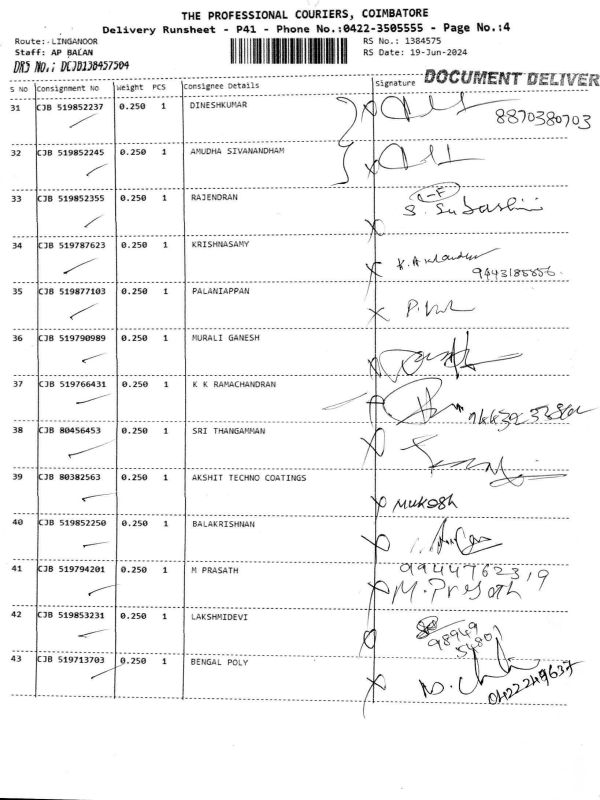 THE PROFESSIONAL COURIERS, COIMBATORE
Delivery Runsheet - P41 - Phone No.:0422-3505555 - Page No.:4
Route:-LINGANOOR RS No.: 1384575
Staff: AP BALAN RS Date: 19-Jun-2024
DRS NO.: DCJD138457504
DOCUMENT DELIVER
S No Consignment No Weight PCS Consignee Details Signature
31 CJB 519852237 0.250 1 DINESHKUMAR 8870380703
32 CJB 519852245 0.250 1 AMUDHA SIVANANDHAM
33 CJB 519852355 0.250 1 RAJENDRAN S. Subashini
34 CJB 519787623 0.250 1 KRISHNASAMY
35 CJB 519877103 0.250 1 PALANIAPPAN
36 CJB 519790989 0.250 1 MURALI GANESH
37 CJB 519766431 0.250 1 K K RAMACHANDRAN
38 CJB 80456453 0.250 1 SRI THANGAMMAN
39 CJB 80382563 0.250 1 AKSHIT TECHNO COATINGS MUKOSH
40 CJB 519852250 0.250 1 BALAKRISHNAN
41 CJB 519794201 0.250 1 M PRASATH 9944762319
M. Prasath
42 CJB 519853231 0.250 1 LAKSHMIDEVI 98949
54801
43 CJB 519713703 0.250 1 BENGAL POLY